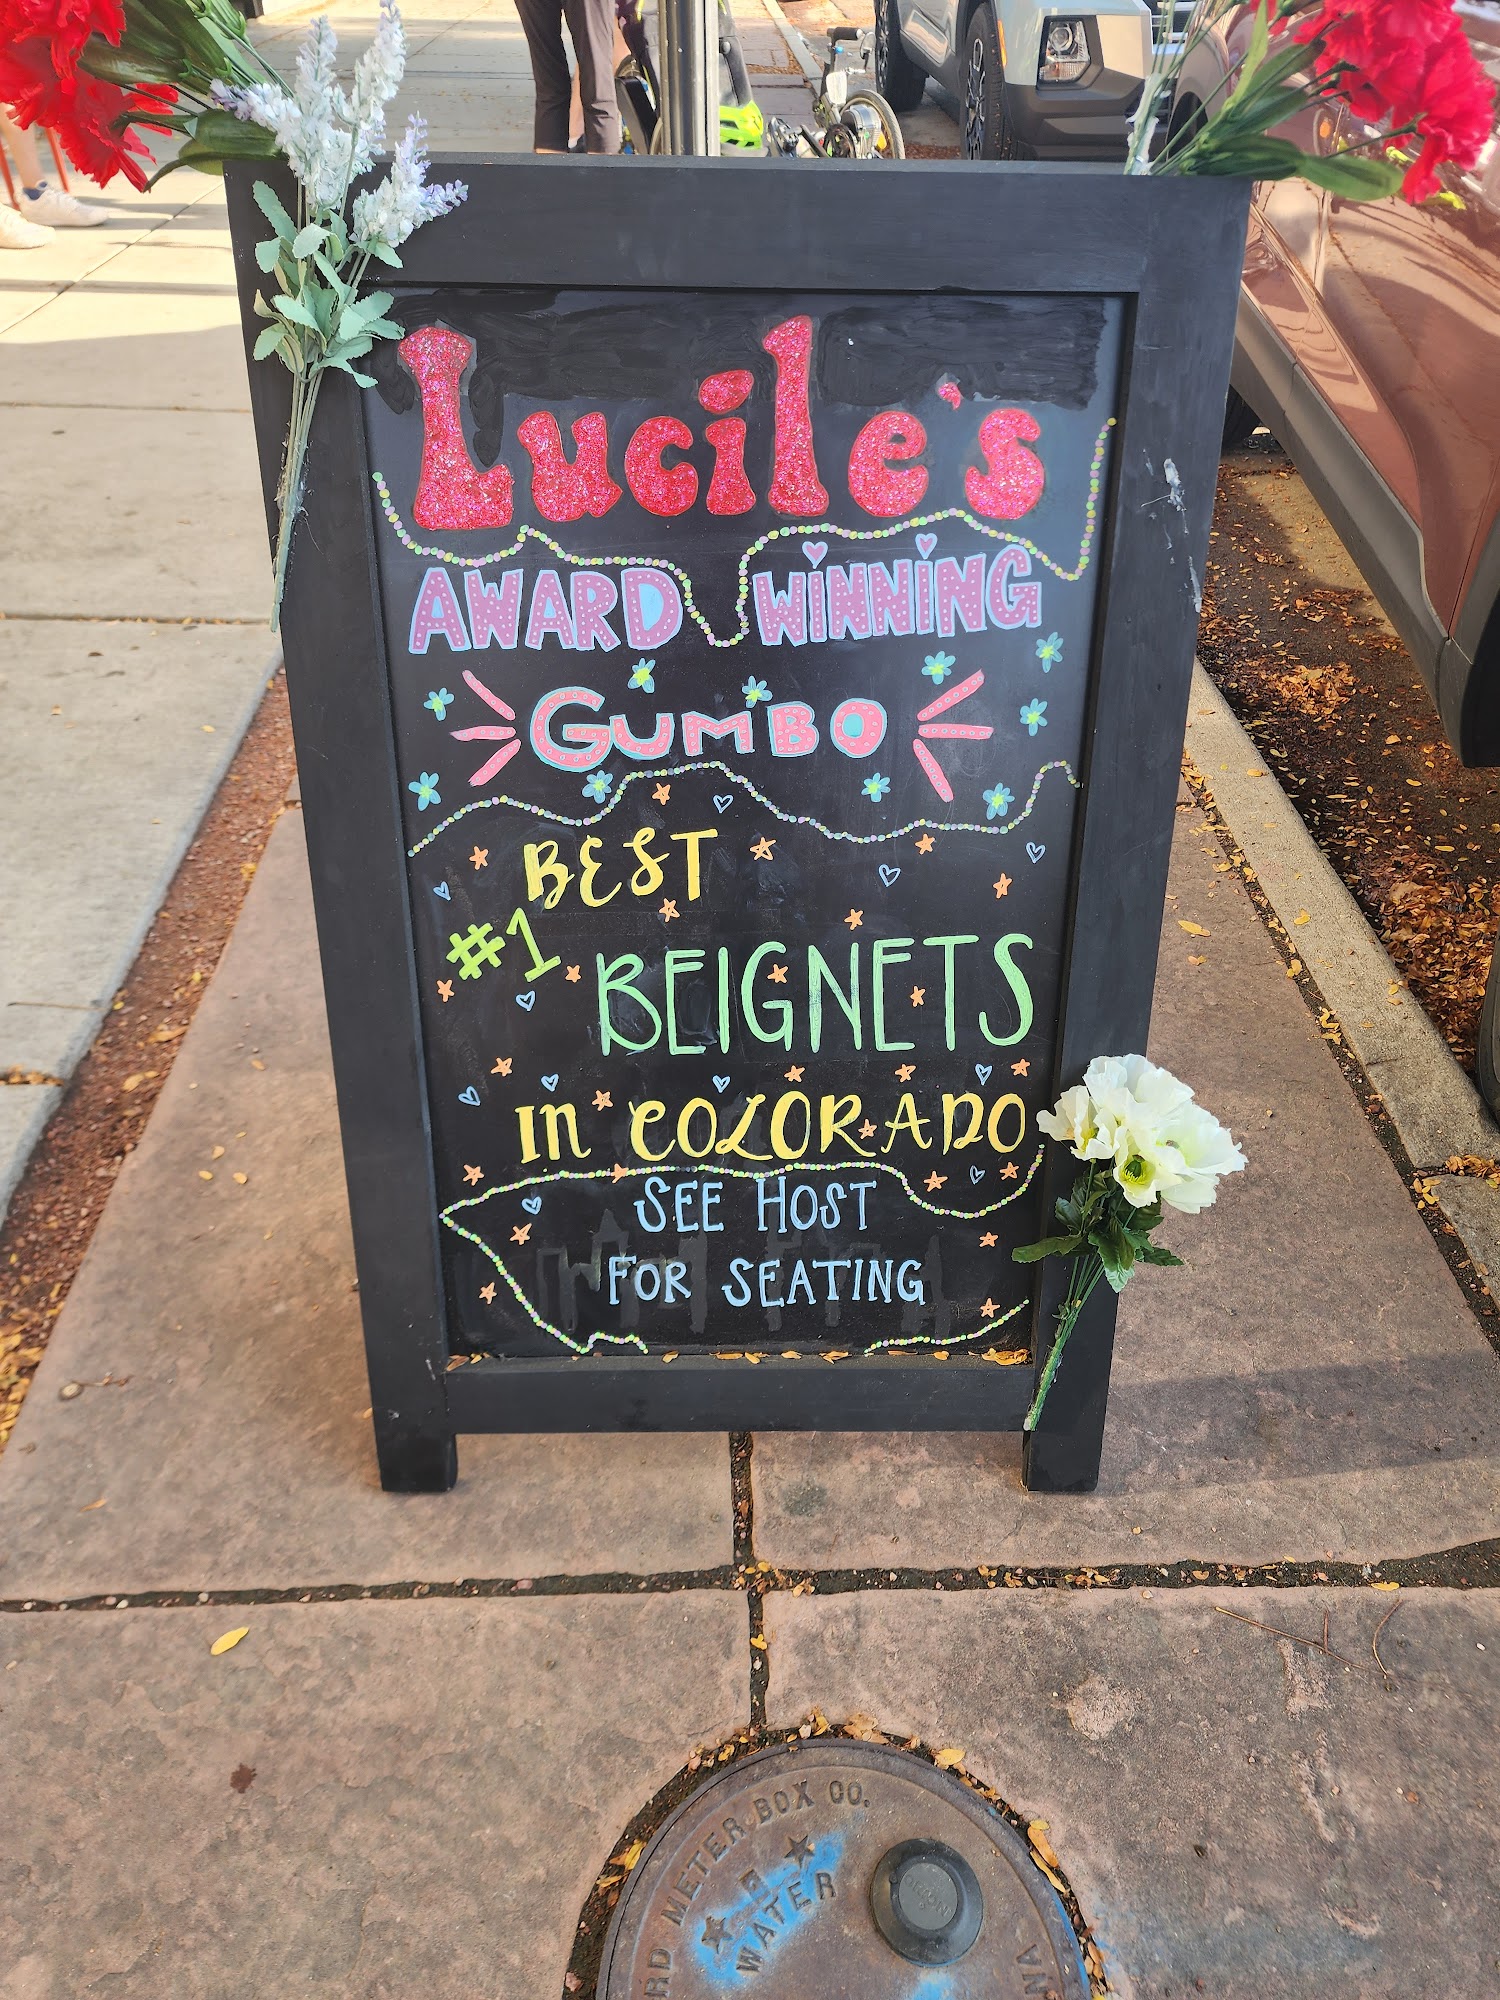 Lucile's
AWARD WINNING
GUMBO
BEST
#1
BEIGNETS
IN COLORADO
SEE HOST
FOR SEATING
RD METER BOX CO.
WATER